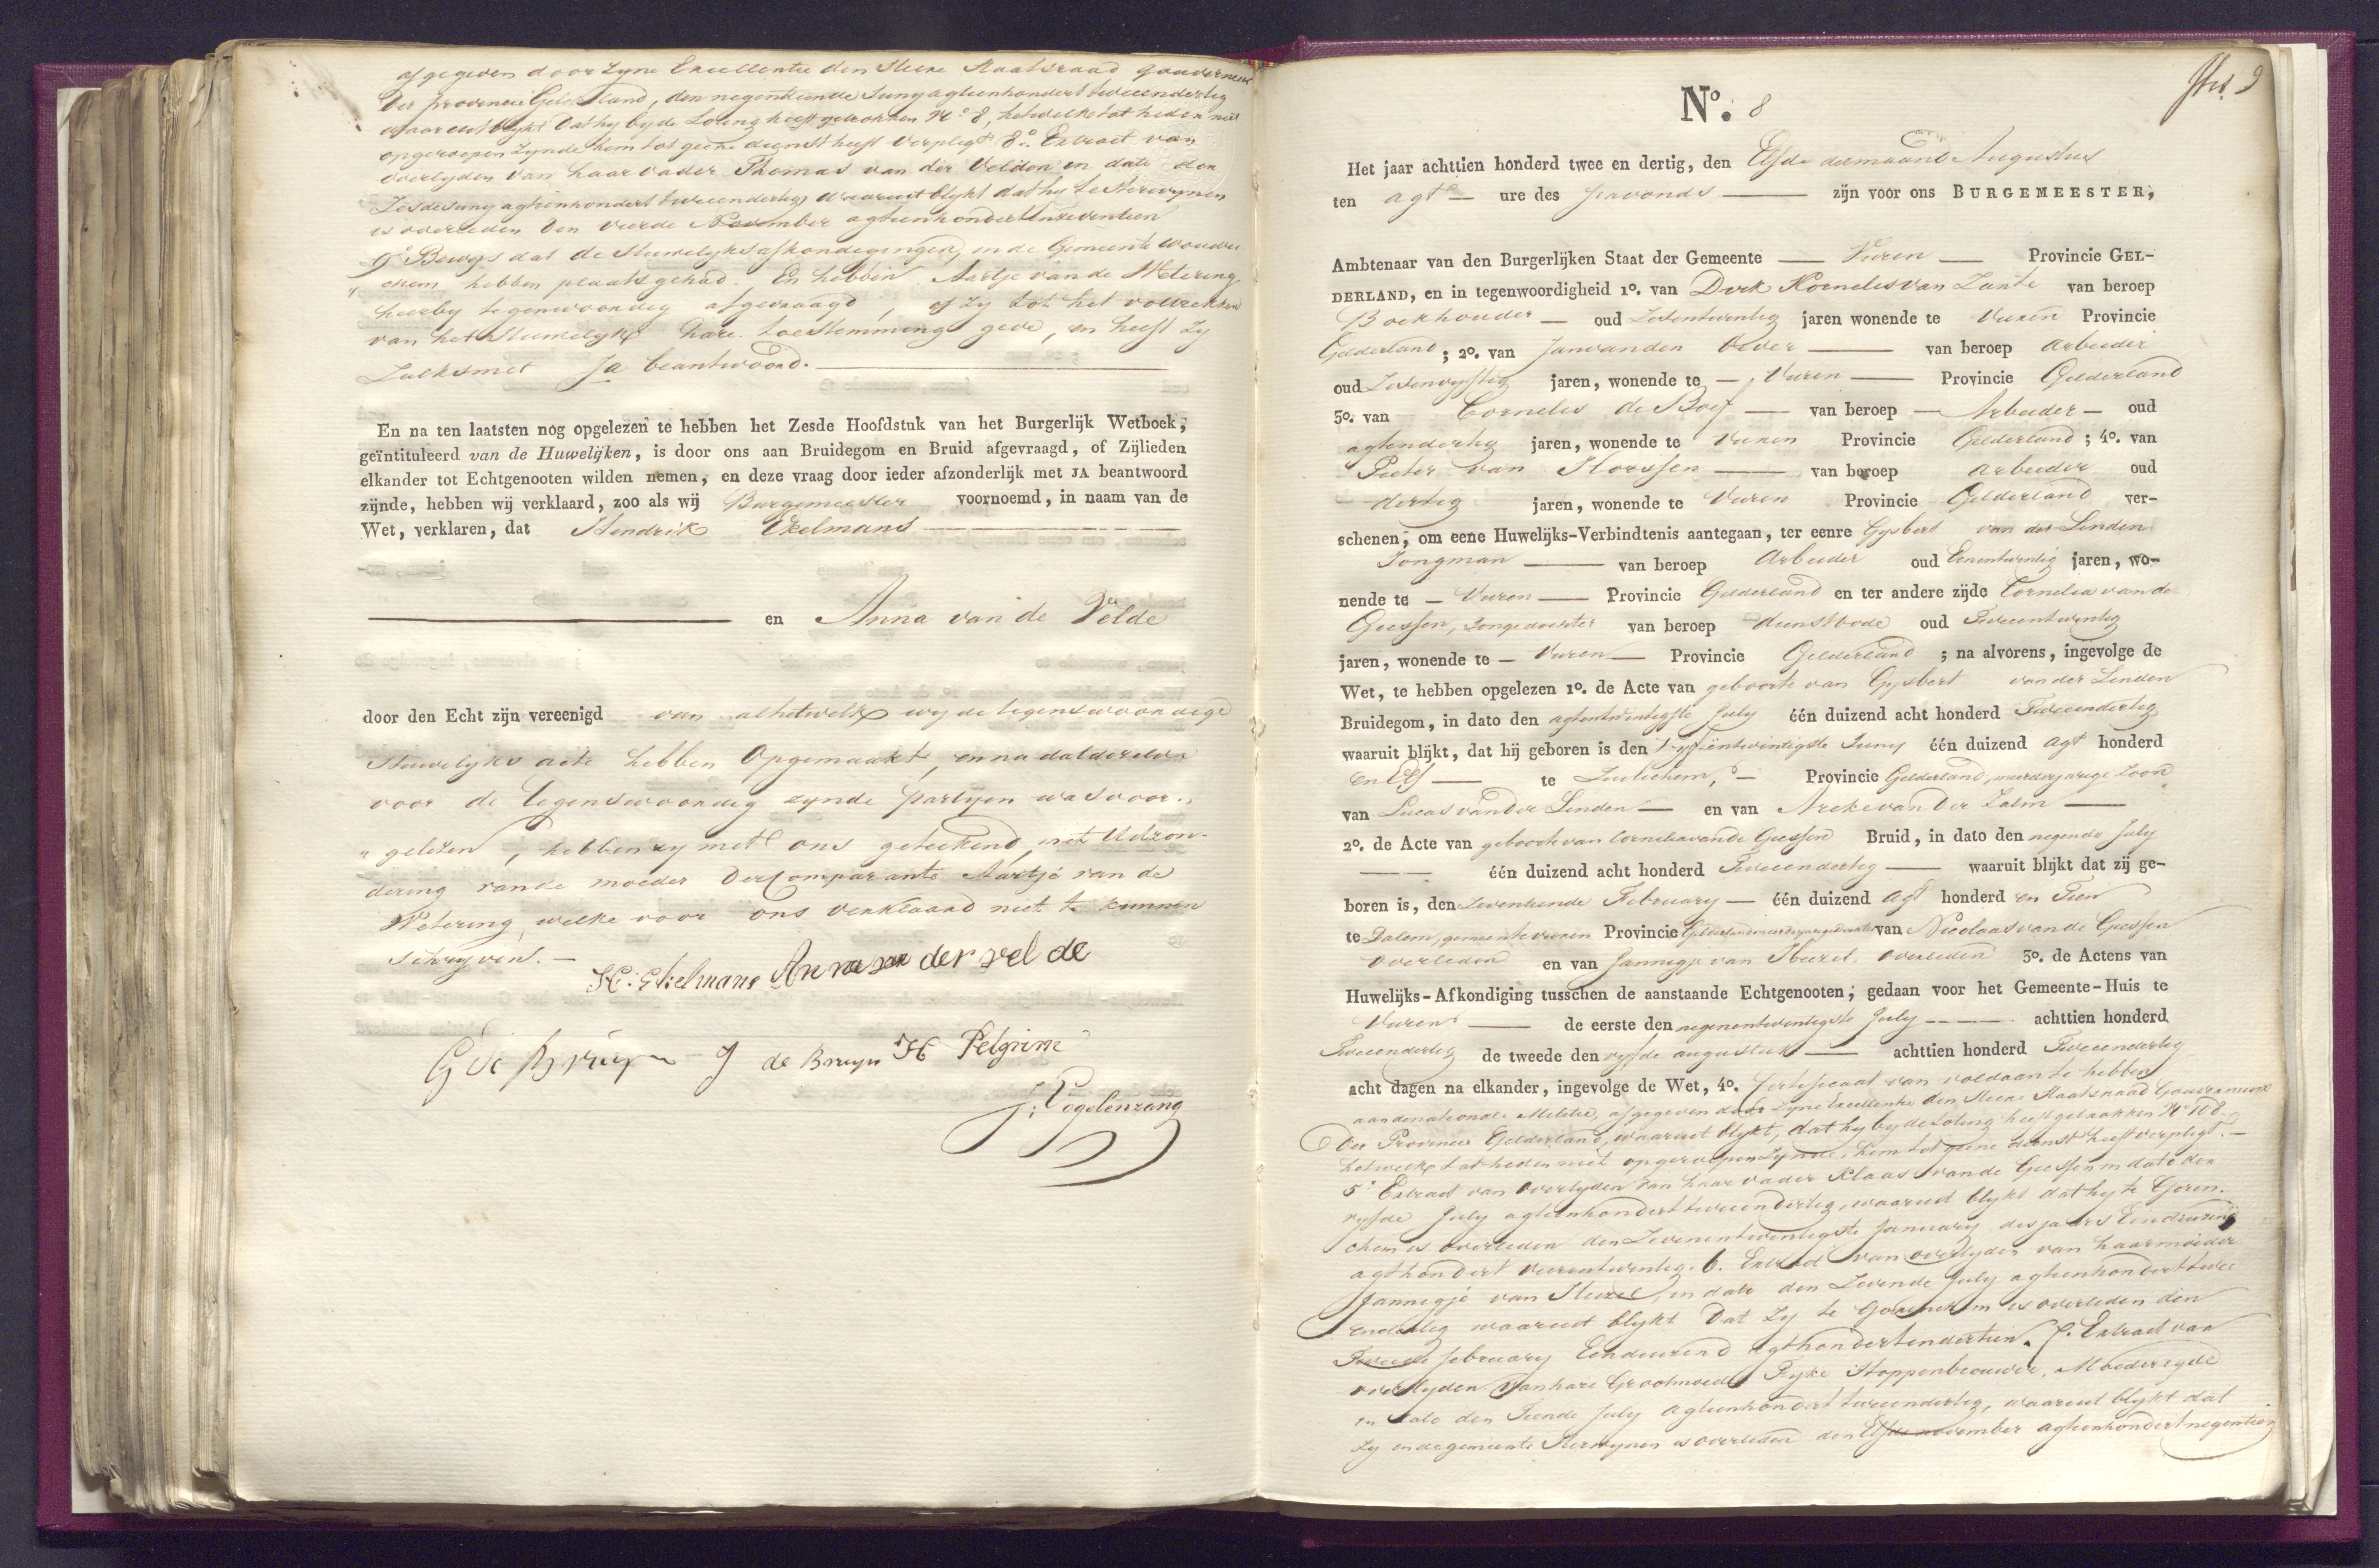 afgegeven door zyne Excellentie den Heere Staatsraad Gouverneur
der provincie Gelderland, den negentiende Juny agtienhondert tweeendertig
waaruit blykt dat hy by de Loting heeft getrokken N.o 8, hetwelke tot heden niet
opgeroepen zynde hem tot geene dienst heeft verpligt 8.o Extract van
overlyden van haar vader Thomas van der Velden in dato den
Zesde Juny agtienhondert tweeendertig waaruit blykt dat hy te Herwynen
is overleden den vierde November agtienhondert en zeventien
9.o Bewys dat de Huwelyksafkondigingen, in de Gemeente Woudri
" chem hebben plaats gehad. En hebben Aartje van de Wetering
hierby tegenwoordig afgevraagd, of zy tot het voltrekken
van het Huwelyk hare toestemming gede, en heeft zy
Zulks met Ja beantwoord.
En na ten laatsten nog opgelezen te hebben het Zesde Hoofdstuk van het Burgerlijk Wetboek,
geïntituleerd van de Huwelijken, is door ons aan Bruidegom en Bruid afgevraagd, of Zijlieden
elkander tot Echtgenooten wilden nemen, en deze vraag door ieder afzonderlijk met JA beantwoord
zijnde, hebben wij verklaard, zoo als wij Burgemeester voornoemd, in naam van de
Wet, verklaren, dat Hendrik Ekelmans
en Anna van de Velde
door den Echt zijn vereenigd van alhetwelk wy de tegenswoordige
Huwelyks acte hebben Opgemaakt, en na dat dezelve
voor de tegenswoordig zynde partyen was voor.
" gelezen, hebben zy met ons geteekend, met Uitzon-
dering van de moeder der Comparante Aartje van de
Wetering welke voor ons verklaard niet te kunnen
schryven.
H: Ekelmans Anna van der vel de
G de Bruyn J de Bruyn H Pelgrim
J: Vogelenzang
No. 8
Het jaar achttien honderd twee en dertig, den Elfde der maand Augustus
ten agt ure des savonds zijn voor ons BURGEMEESTER,
Ambtenaar van den Burgerlijken Staat der Gemeente Vuren Provincie GEL-
DERLAND, en in tegenwoordigheid 1o. van Dirk Kornelis van Zante van beroep
Boekhouder oud Zesentwintig jaren wonende te Vuren Provincie
Gelderland; 2o. van Jan van den Oever van beroep Arbeider
oud Zesenvyftig jaren, wonende te Vuren Provincie Gelderland
3o. van Cornelis de Boef van beroep Arbeider oud
agtendertig jaren, wonende te Vuren Provincie Gelderland; 4o. van
Pieter van Horssen van beroep Arbeider oud
dertig jaren, wonende te Vuren Provincie Gelderland ver-
schenen, om eene Huwelijks-Verbindtenis aantegaan, ter eenre Gysbert van der Linden
Jongman van beroep Arbeider oud Eenentwintig jaren, wo-
nende te Vuren Provincie Gelderland en ter andere zijde Cornelia van de
Giessen, Jongedochter van beroep dienstbode oud Tweeentwintig
jaren, wonende te Vuren Provincie Gelderland; na alvorens, ingevolge de
Wet, te hebben opgelezen 1o. de Acte van geboorte van Gysbert van der Linden
Bruidegom, in dato den agtentwintigste July één duizend acht honderd Tweeendertig
waaruit blijkt, dat hij geboren is den Vyfentwintigste Juny één duizend agt honderd
en Elf te Zuilichem, Provincie Gelderland, meerderjarige Zoon
van Lucas van der Linden en van Areke van der Zalm
2o. de Acte van geboorte van Cornelia van de Giessen Bruid, in dato den negende July
één duizend acht honderd Tweeendertig waaruit blijkt dat zij ge-
boren is, den Zeventiende February één duizend Agt honderd en Tien
te Dalem, gemeente Vuren Provincie Gelderland meerderjarige dochter van Nicolaas van de Giessen
overleden en van Jannigje van Heezel, overleden 3o. de Actens van
Huwelijks-Afkondiging tusschen de aanstaande Echtgenooten, gedaan voor het Gemeente-Huis te
Vuren de eerste den negenentwintigste July achttien honderd
Tweeendertig de tweede den vyfde augustus achttien honderd Tweeendertig
acht dagen na elkander, ingevolge de Wet, 4o. Certificaat van voldaan te hebben
aan de nationale Militie, afgegeven door zyne Excellentie den Heere Staatsraad Gouverneur
der Provincie Gelderland, waaruit blykt, dat hy by de Loting heeft getrokken N.o 108
hetwelk tot heden niet opgeroepen Zynde, hem tot geene dienst heeft verpligt.
5.o Extract van Overlyden van haar vader Klaas van de Giessen in dato den
vyfde July agtienhondert tweeendertig, waaruit blykt dat hy te Gorin-
chem is overleden den Zevenentwintigste January des jaars Eenduizend
agthondert vierentwintig. 6. Extract van overlyden van haar moeder
Jannigje van Heezel, in dato den Zevende July agtienhondert twee
endertig waaruit blykt dat zy te Gorinchem is overleden den
Tweede february Eenduizend agthondertendertien. 7. Extract van
overlyden van hare Grootmoeder Fyke Stoppenbrouwer, Moederzyde
in dato den Tiende July Agtienhondert tweeendertig, waaruit blykt dat
zy in de gemeente Herwynen is overleden den Elfde november agtienhondert negentien